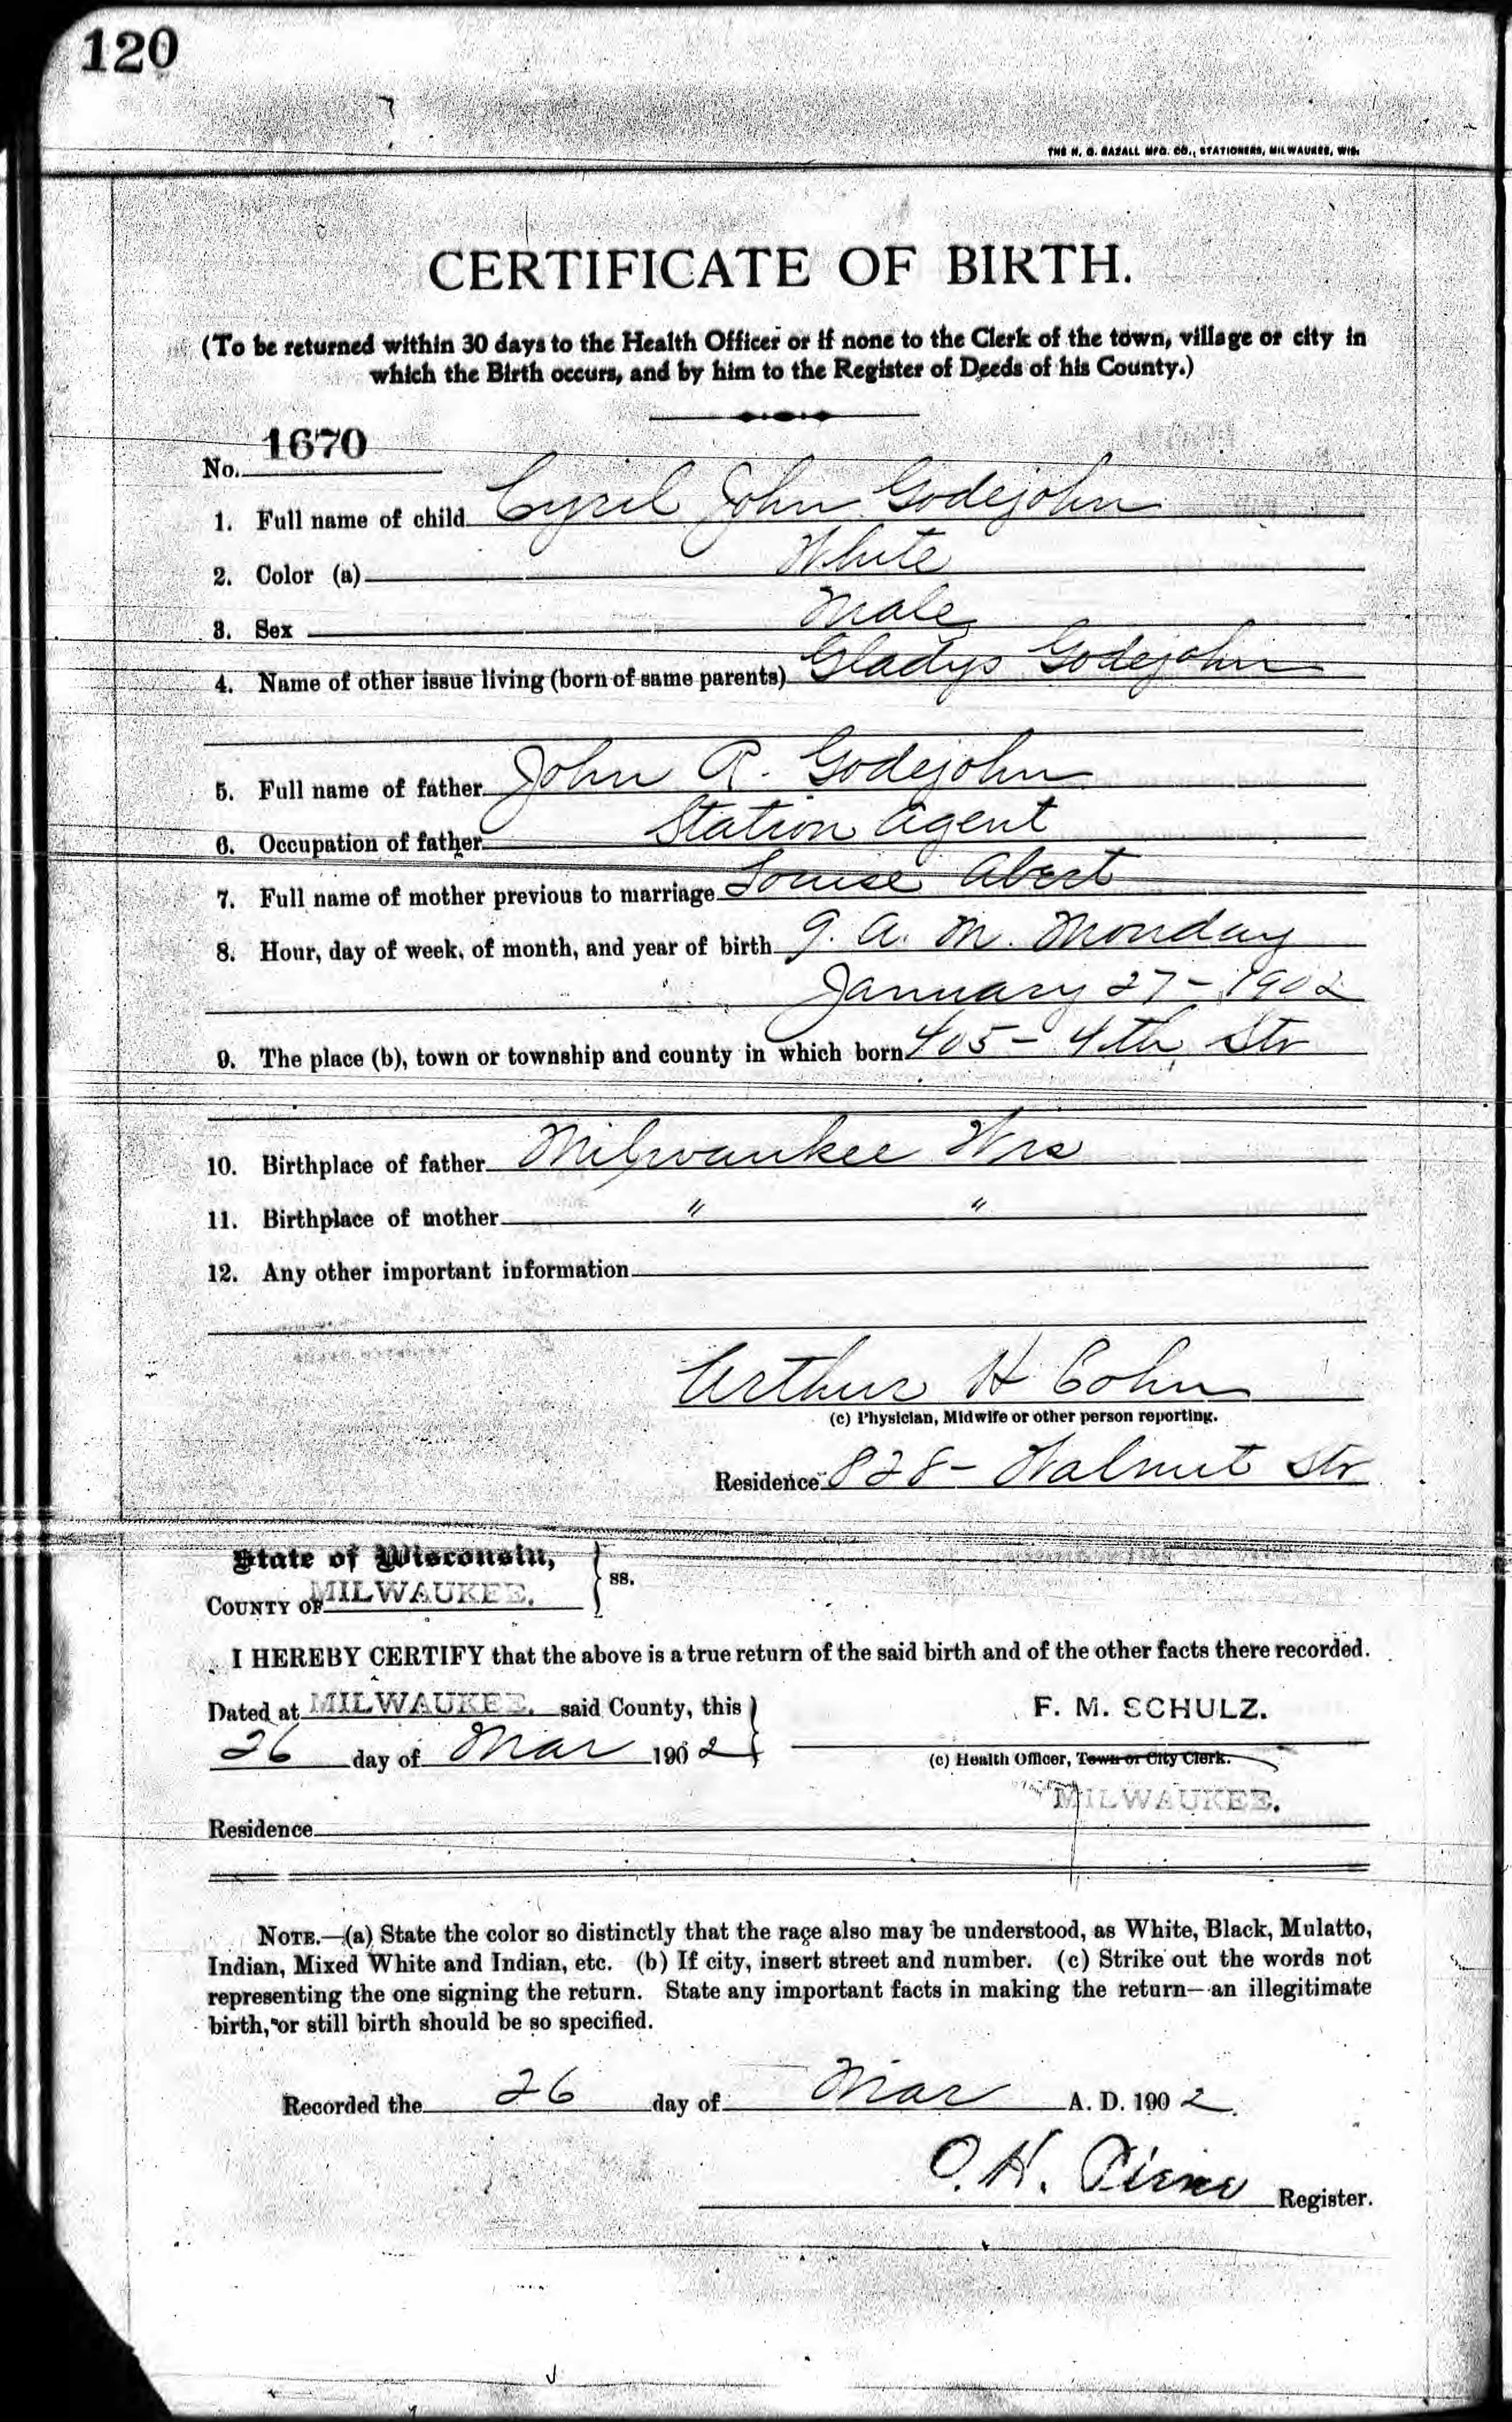 120
THE H. G. RAZALL MFG. CO., STATIONERS, MILWAUKEE, WIS.
CERTIFICATE OF BIRTH.
(To be returned within 30 days to the Health Officer or if none to the Clerk of the town, village or city in
which the Birth occurs, and by him to the Register of Deeds of his County.)
No. 1670
1. Full name of child Cyril John Godejohn
2. Color (a) White
3. Sex Male
4. Name of other issue living (born of same parents) Gladys Godejohn
5. Full name of father John R. Godejohn
6. Occupation of father Station Agent
7. Full name of mother previous to marriage Louise Abert
8. Hour, day of week, of month, and year of birth 9. A. M. Monday
January 27 - 1902
9. The place (b), town or township and county in which born 405 - 4th Str
10. Birthplace of father Milwaukee Wis
11. Birthplace of mother " "
12. Any other important information
Arthur H Cohn
(c) Physician, Midwife or other person reporting.
Residence 828 - Walnut Str
State of Wisconsin,
COUNTY OF MILWAUKEE. } ss.
I HEREBY CERTIFY that the above is a true return of the said birth and of the other facts there recorded.
Dated at MILWAUKEE. said County, this } F. M. SCHULZ.
26 day of Mar 1902 (c) Health Officer, Town or City Clerk.
MILWAUKEE.
Residence
NOTE.—(a) State the color so distinctly that the race also may be understood, as White, Black, Mulatto,
Indian, Mixed White and Indian, etc. (b) If city, insert street and number. (c) Strike out the words not
representing the one signing the return. State any important facts in making the return—an illegitimate
birth, or still birth should be so specified.
Recorded the 26 day of Mar A. D. 1902.
O. H. Register.